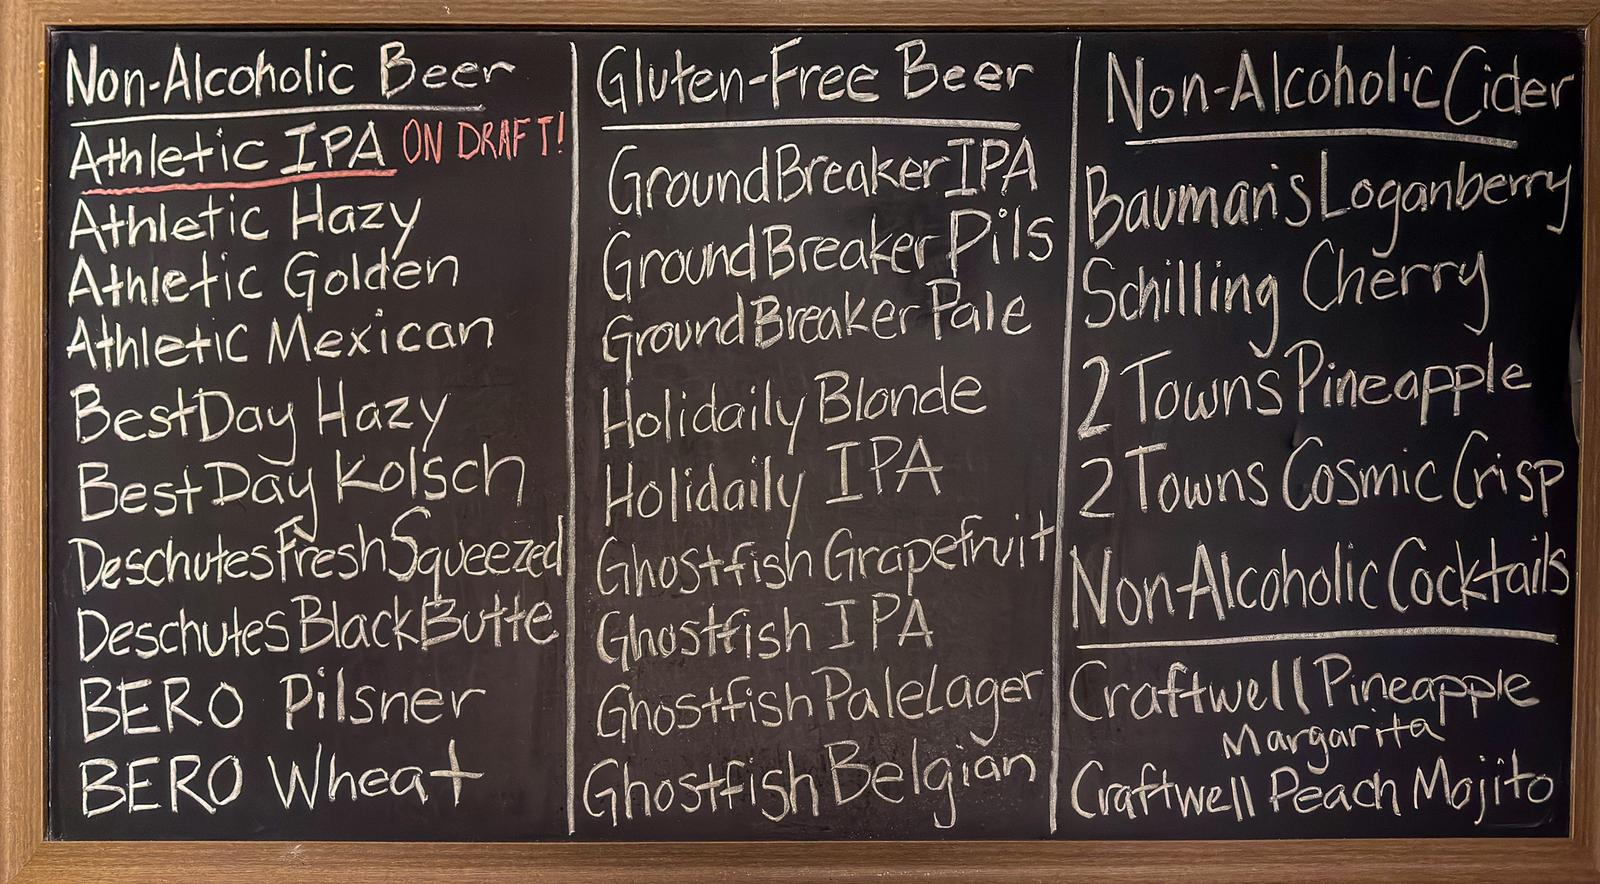 Non-Alcoholic Beer
Athletic IPA ON DRAFT!
Athletic Hazy
Athletic Golden
Athletic Mexican
BestDay Hazy
BestDay Kolsch
Deschutes Fresh Squeezed
Deschutes Black Butte
BERO Pilsner
BERO Wheat
Gluten-Free Beer
GroundBreaker IPA
GroundBreaker Pils
GroundBreaker Pale
Holidaily Blonde
Holidaily IPA
Ghostfish Grapefruit
Ghostfish IPA
Ghostfish Pale Lager
Ghostfish Belgian
Non-Alcoholic Cider
Bauman's Loganberry
Schilling Cherry
2 Town's Pineapple
2 Towns Cosmic Crisp
Non-Alcoholic Cocktails
Craftwell Pineapple
Margarita
Craftwell Peach Mojito